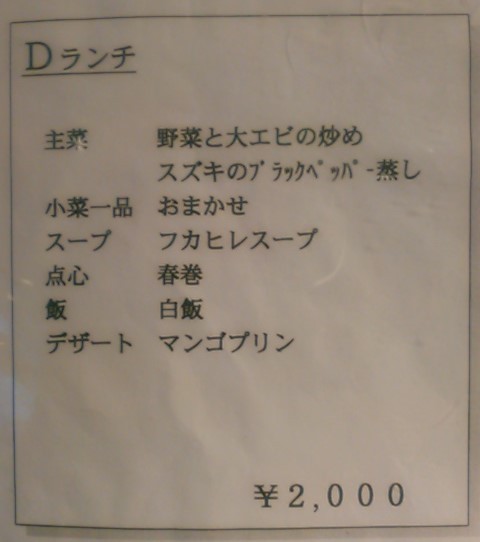 Dランチ
主菜 野菜と大エビの炒め
スズキのﾌﾞﾗｯｸﾍﾟｯﾊﾟｰ蒸し
小菜一品 おまかせ
スープ フカヒレスープ
点心 春巻
飯 白飯
デザート マンゴプリン
￥2,000